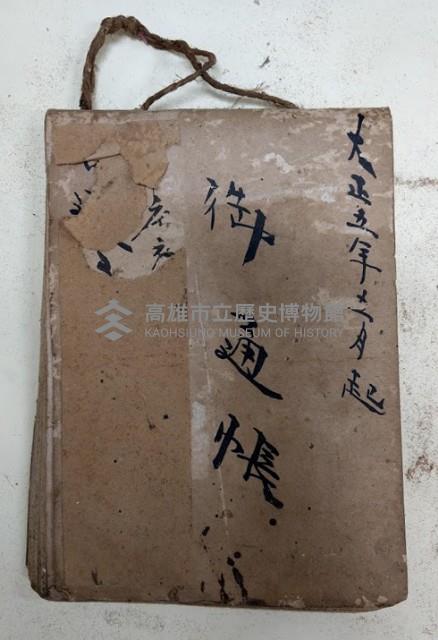 大正五年十一月起
御通帳
高雄市立歷史博物館
KAOHSIUNG MUSEUM OF HISTORY